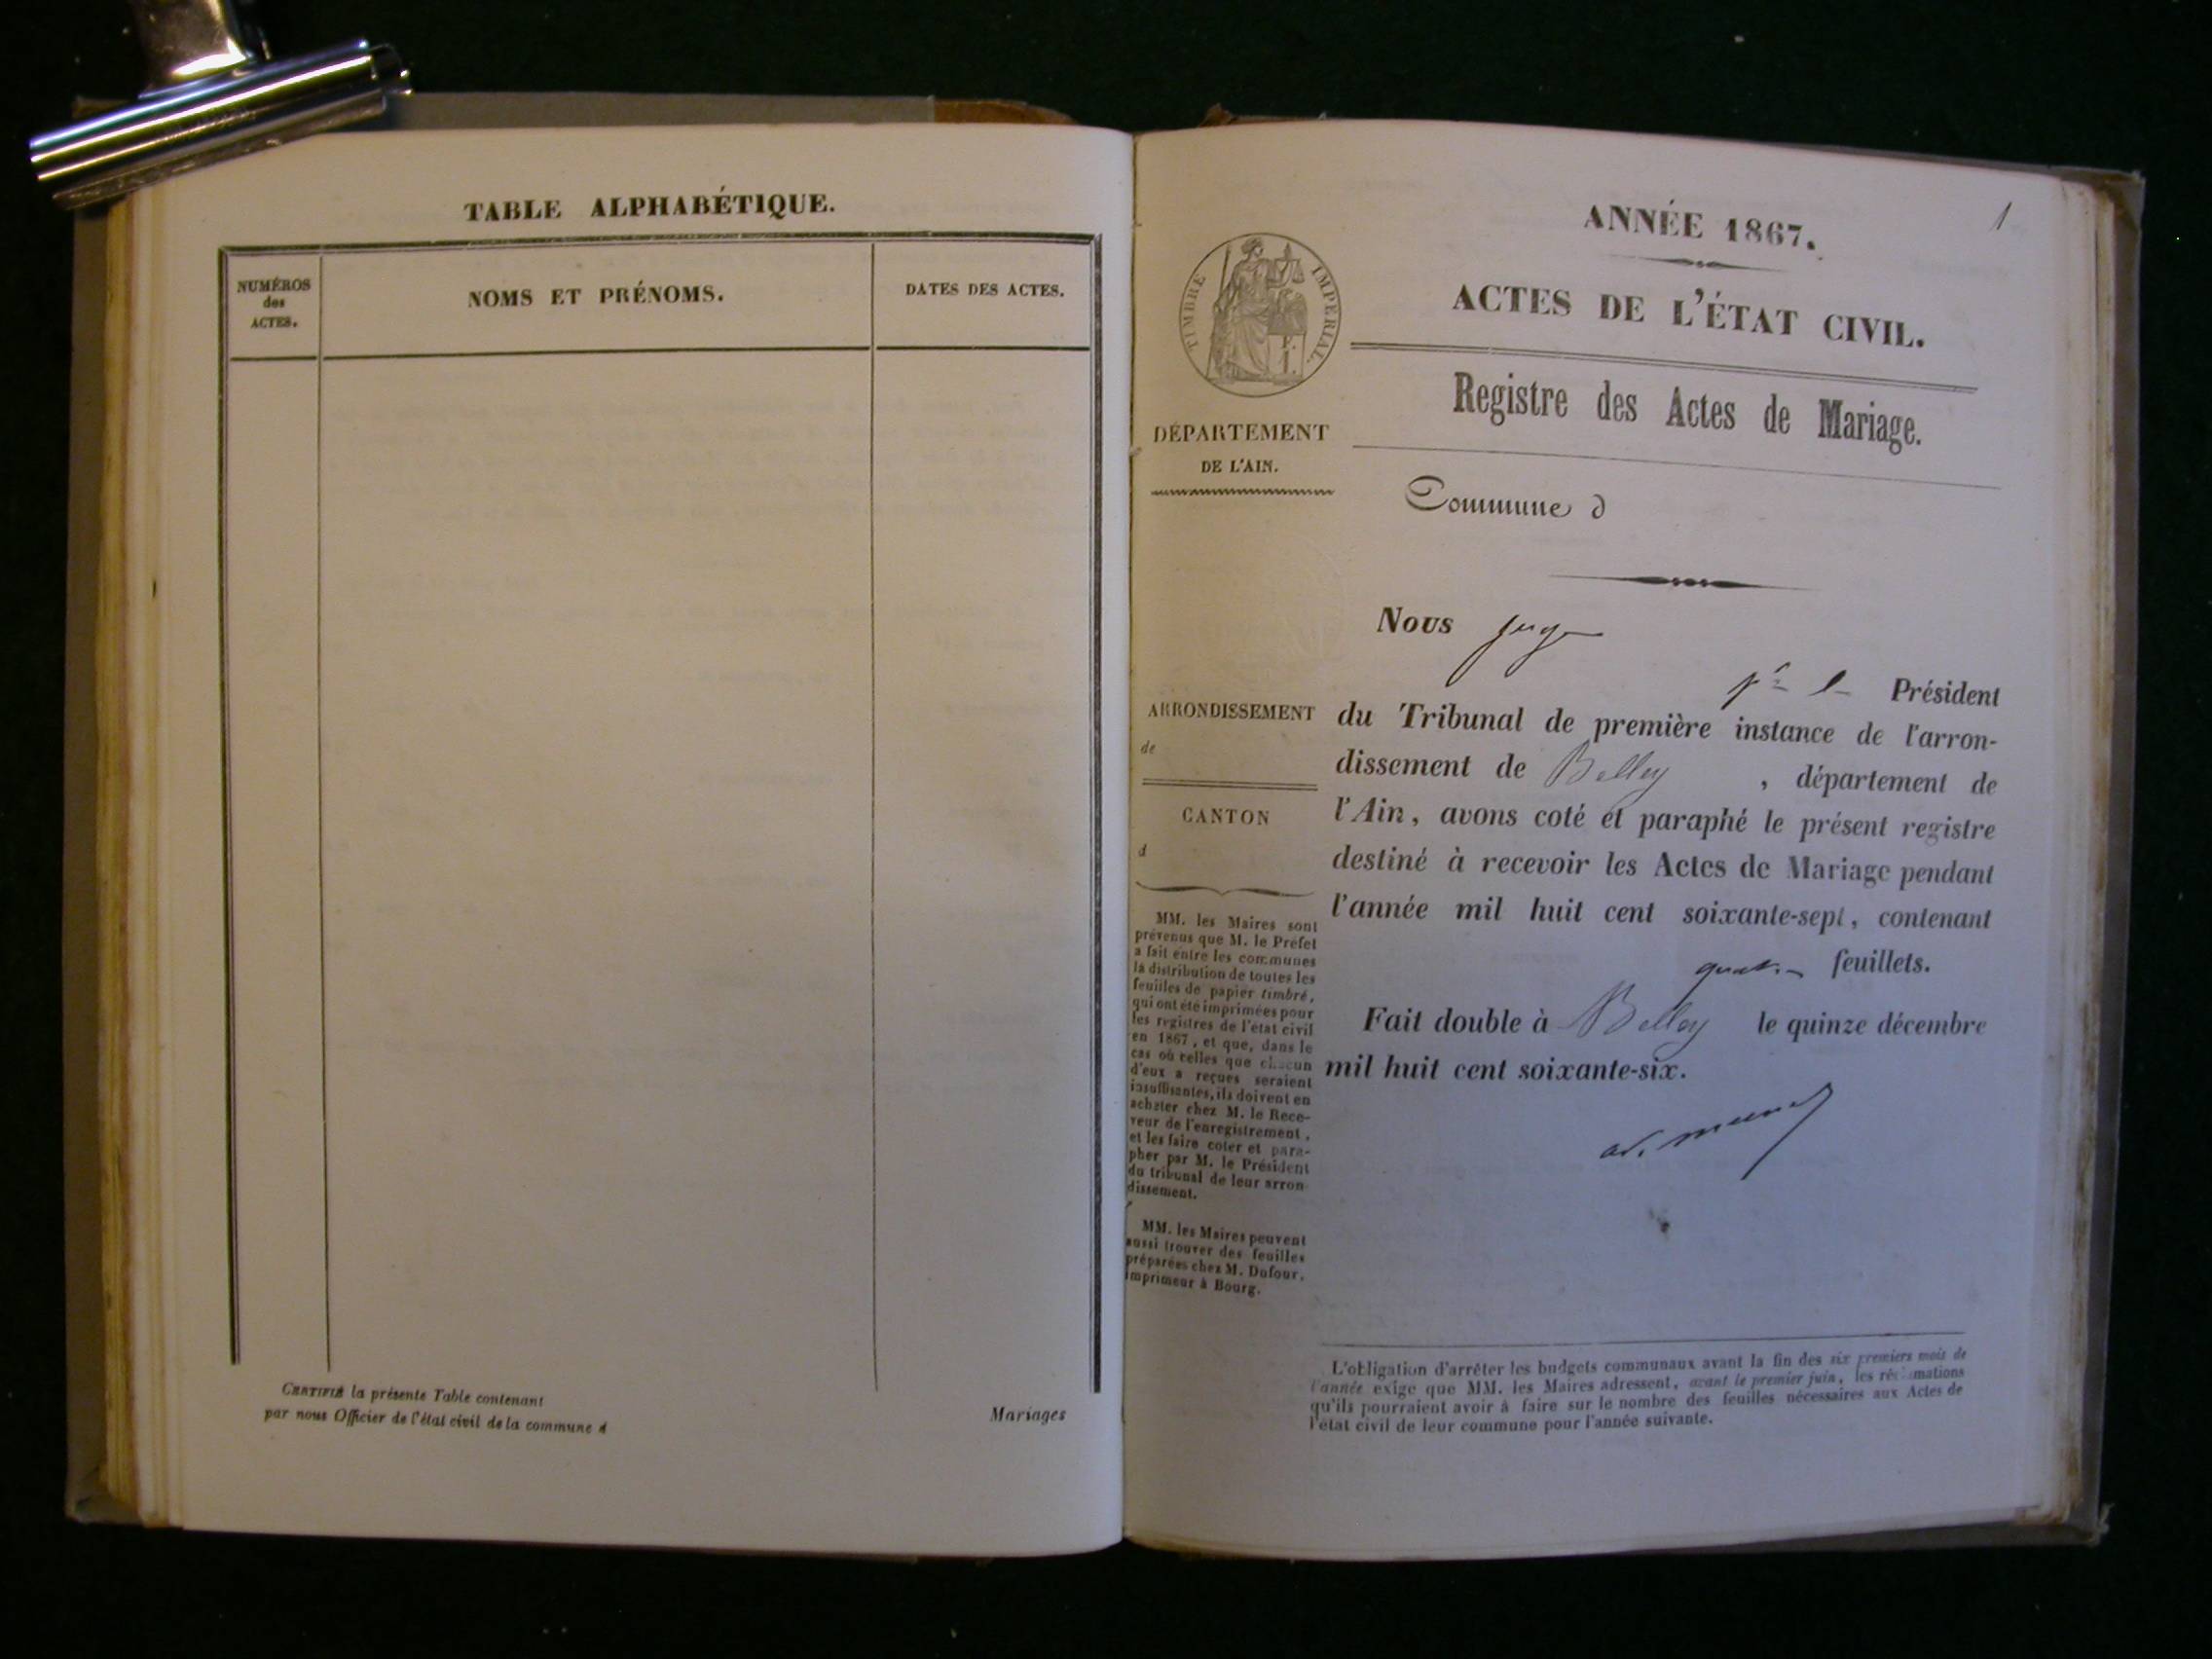 TABLE ALPHABÉTIQUE.
NUMÉROS
des
ACTES.
NOMS ET PRÉNOMS.
DATES DES ACTES.
CERTIFIÉ la présente Table contenant
Mariages
par nous Officier de l'état civil de la commune d
1
ANNÉE 1867.
ACTES DE L'ÉTAT CIVIL.
Registre des Actes de Mariage.
TIMBRE IMPÉRIAL.
F.
1.
DÉPARTEMENT
DE L'AIN.
Commune d
Nous juge
pr le Président
du Tribunal de première instance de l'arron-
dissement de Belley , département de
l'Ain, avons coté et paraphé le présent registre
destiné à recevoir les Actes de Mariage pendant
l'année mil huit cent soixante-sept, contenant
quatre feuillets.
Fait double à Belley le quinze décembre
mil huit cent soixante-six.
ARRONDISSEMENT
de
CANTON
d
MM. les Maires sont
prévenus que M. le Préfet
a fait entre les communes
la distribution de toutes les
feuilles de papier timbré,
qui ont été imprimées pour
les registres de l'état civil
en 1867, et que, dans le
cas où celles que chacun
d'eux a reçues seraient
insuffisantes, ils doivent en
acheter chez M. le Rece-
veur de l'enregistrement,
et les faire coter et para-
pher par M. le Président
du tribunal de leur arron-
dissement.
MM. les Maires peuvent
aussi trouver des feuilles
préparées chez M. Dufour,
imprimeur à Bourg.
L'obligation d'arrêter les budgets communaux avant la fin des six premiers mois de
l'année exige que MM. les Maires adressent, avant le premier juin, les réclamations
qu'ils pourraient avoir à faire sur le nombre des feuilles nécessaires aux Actes de
l'état civil de leur commune pour l'année suivante.